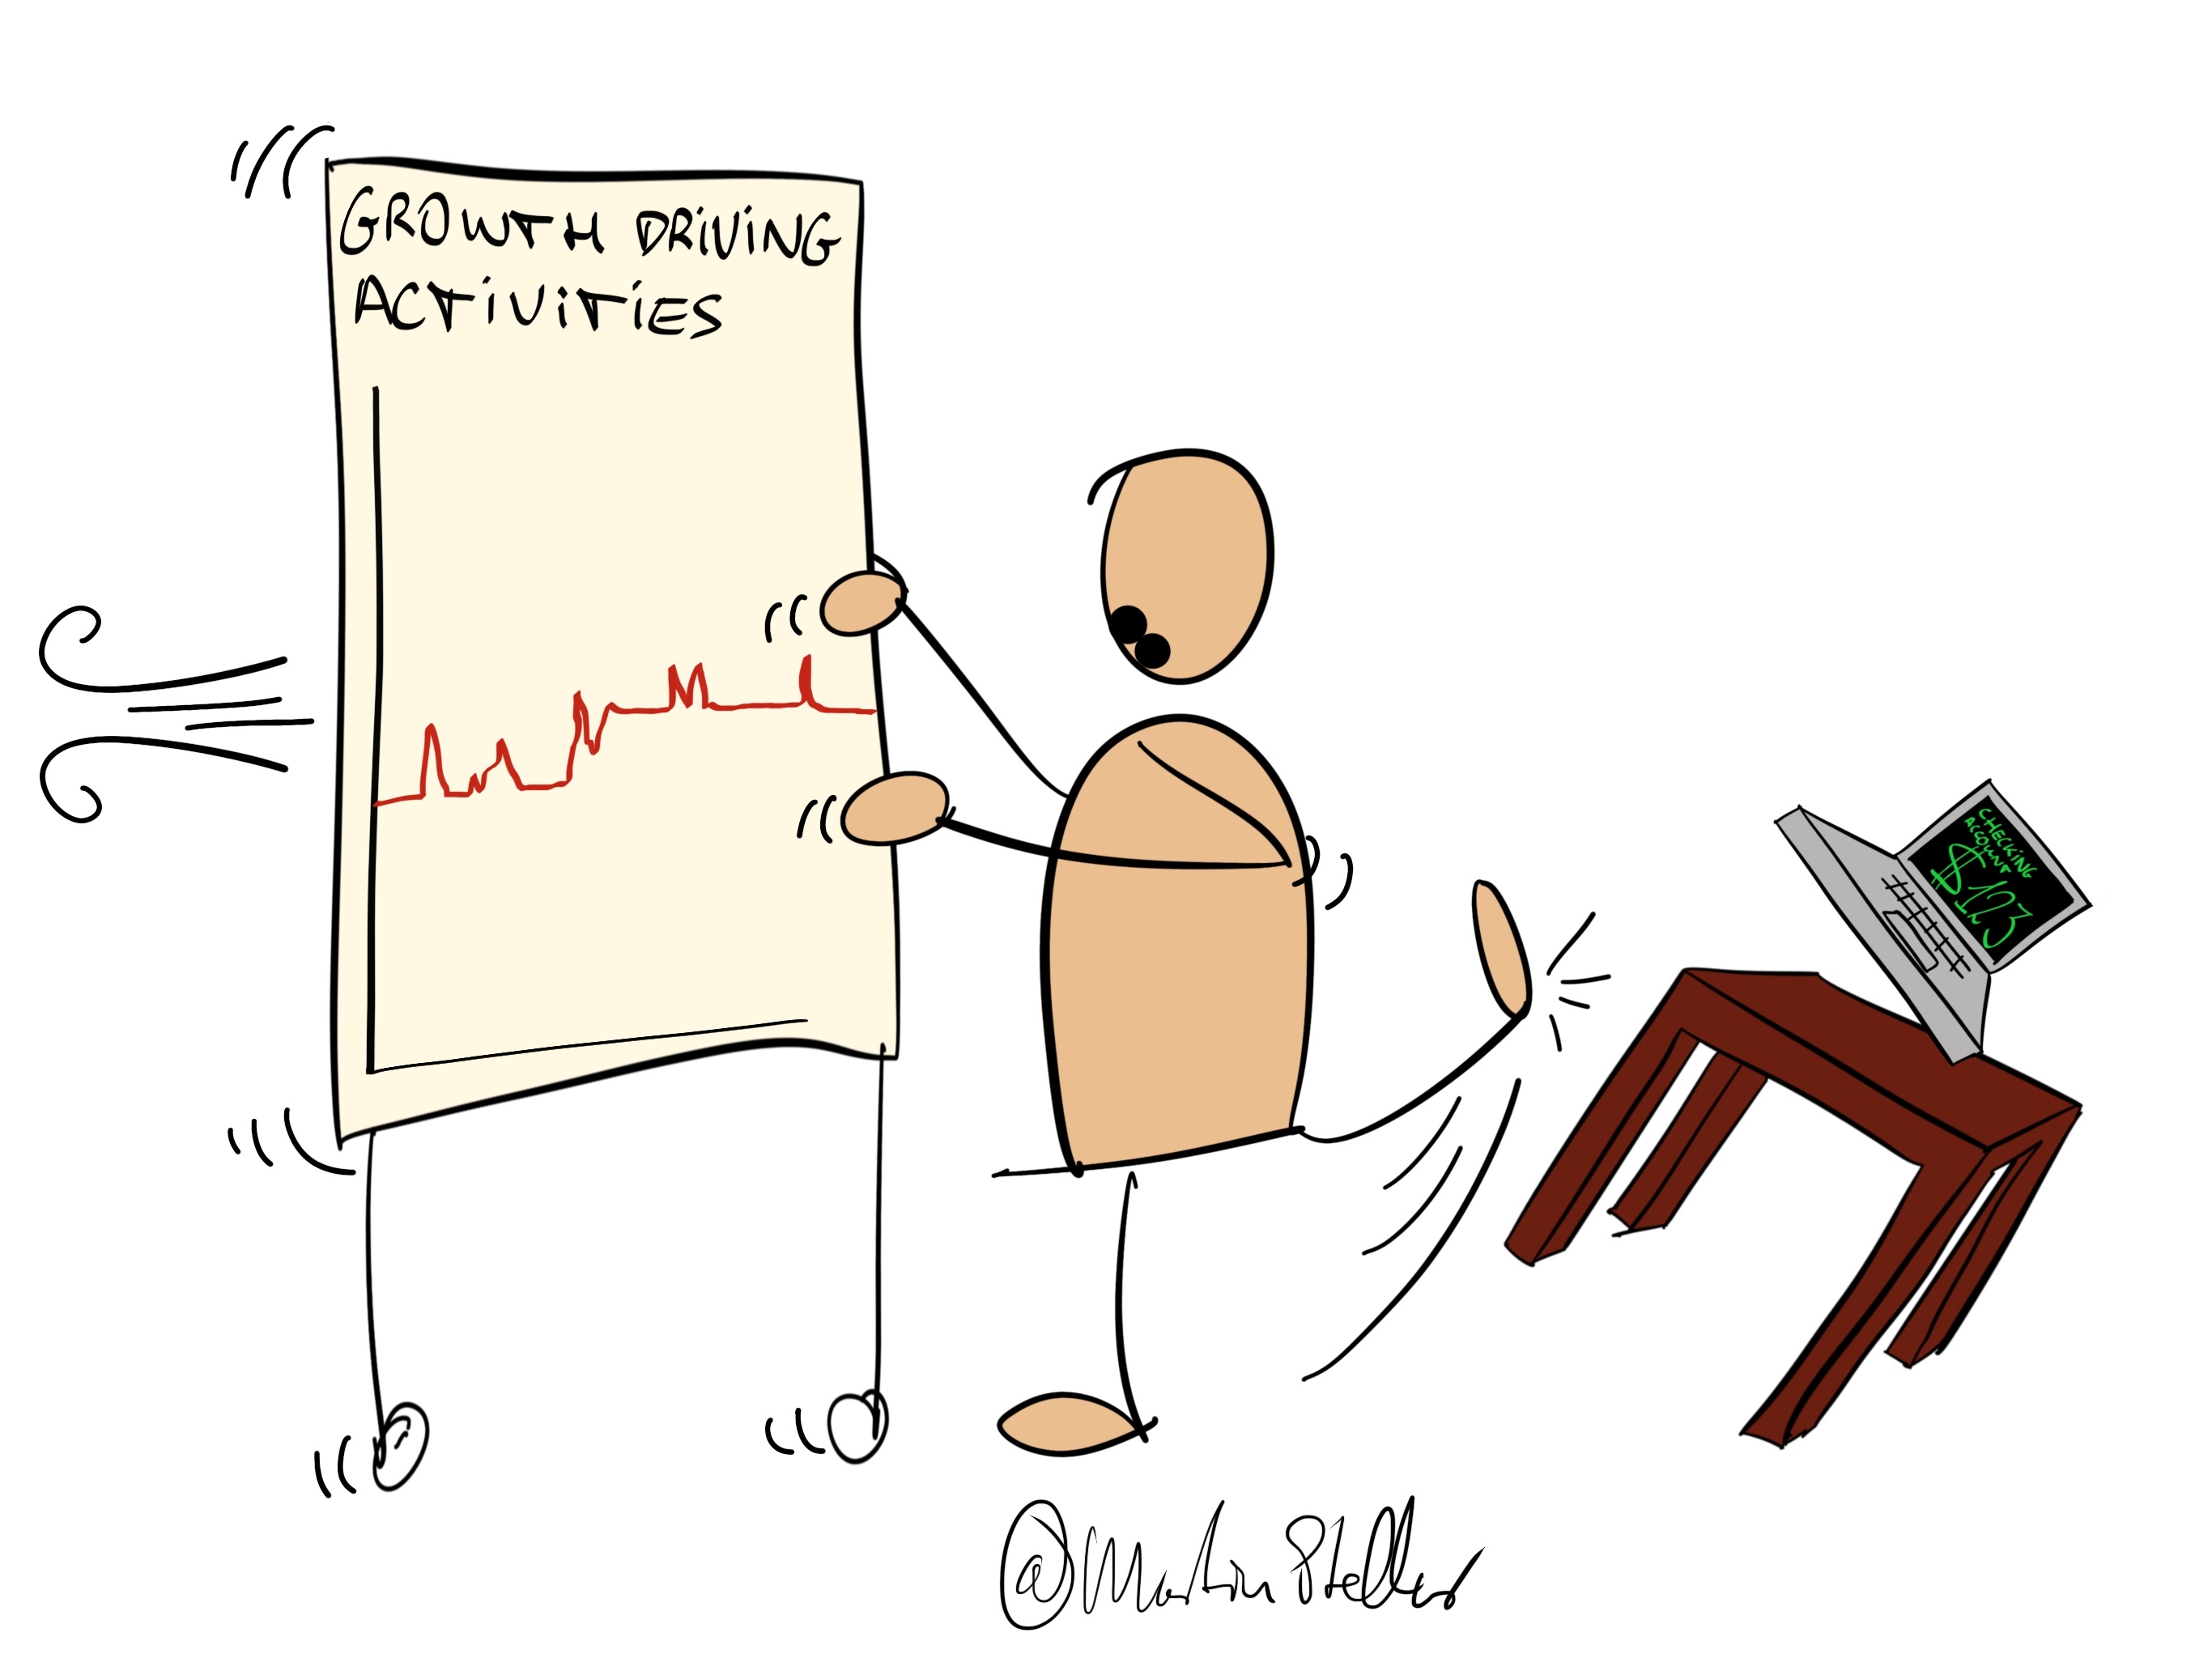 GROWTH DRiViNG
ACTiViTiES
CHECKiNG
ACCOUNT
$123
@MartinStellar